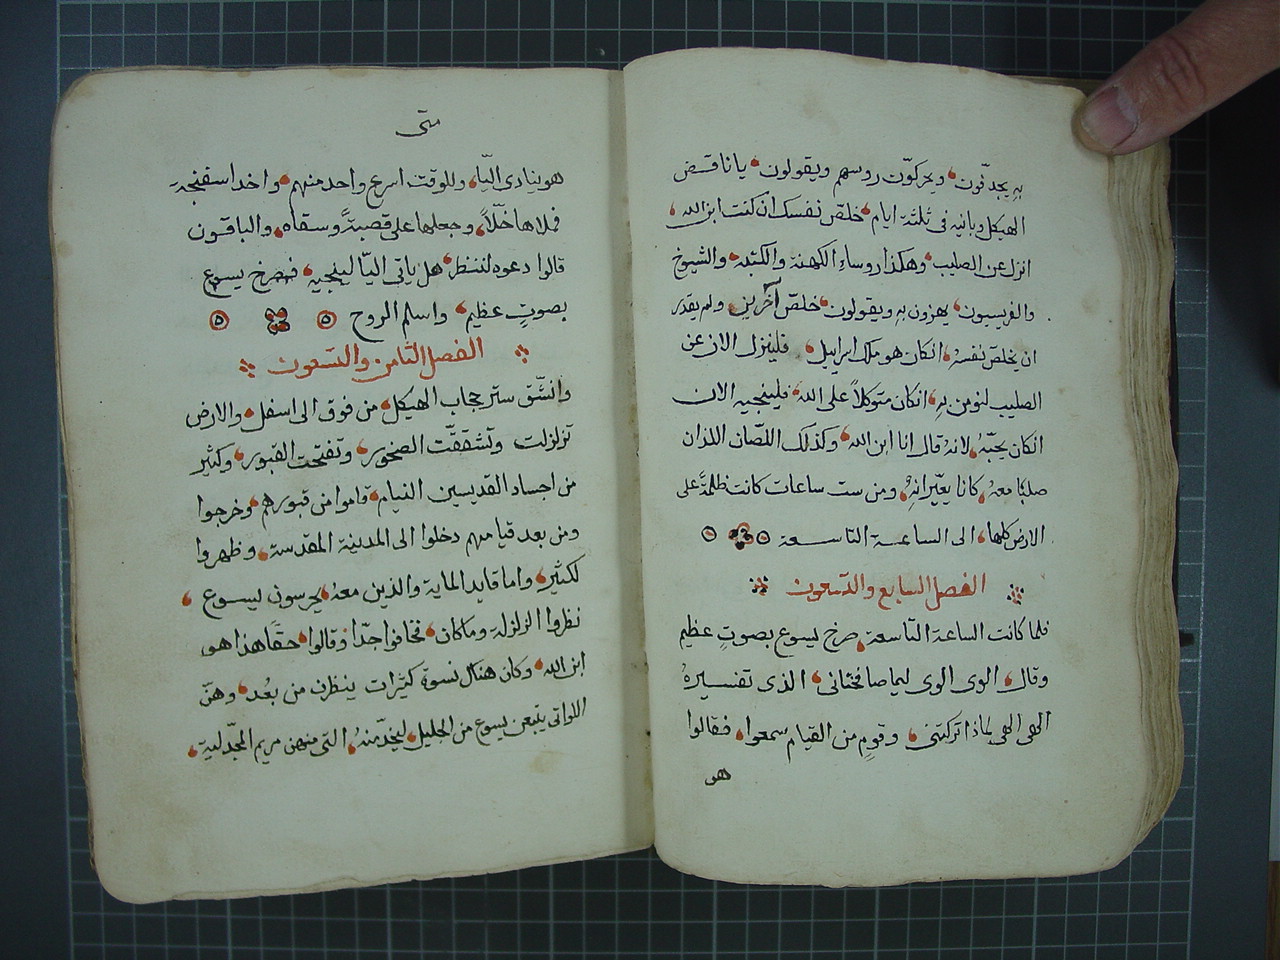 بهِ يجدّفون، ويحركوّن روسهم ويقولون، يا ناقض
الهيكل وبانيه فى ثلثة ايام، خلّص نفسك ان كنت ابن الله،
انزل عن الصليب، وهكذا روساءِ الكهنة والكتبه، والشيوخ
والفريسيون، يهزون بهِ ويقولون، خلّص آخَرين، ولم يقدر
ان يخلّص نفسهُ، انكان هو ملك اسراييل، فلينزل الان عن
الصليب لنومن بهِ، انكان متوكلاً على الله، فلينجيه الان
انكان يحبّهُ، لانهُ قال انا ابن الله، وكذلك اللصّان اللذان
صلبا معهُ، كانا يعيّرانهِ، ومن ست ساعات كانت ظلمةً على
الارض كلها، الى الساعة التاسعة
الفصل السابع والتسعون
فلما كانت الساعة التاسعة، صرخ يسوع بصوتٍ عظيم
وقال، الوى الوى ليما صافختانى، الذى تفسيرهُ
الهى الهى لماذا تركتنى، وقومٍ من القيام سمعوا، فقالوا
هو
متى
هو ينادى اليّا، وللوقت اسرع واحد منهم، واخد اسفنجة
فملاها خلّاً، وجعلها على قصبةً وسقاه، والباقون
قالوا دعوه لننظر، هل ياتى اليّا لينجيه، فصرخ يسوع
بصوتٍ عظيم، واسلم الروح
الفصل الثامن والتسعون
وانشّق ستر حجاب الهيكل، من فوق الى اسفل، والارض
تزلزلت وتشققّت الصخور، وتفتحت القبور، وكثير
من اجساد القديسين النيام، قاموا من قبورهم، وخرجوا
ومن بعد قيامهم دخلوا الى المدينة المقدسة، وظهروا
لكثير، واما قايد الماية والذين معهُ، يحرسون ليسوع،
نظروا الزلزلة وماكان، فخافوا جدّا، وقالوا، حقًا هذا هو
ابن الله، وكان هناك نسوة كثيرات ينظرن من بُعد، وهنّ
اللواتى يتبعن يسوع من الجليل، ليخدّمنهُ، التى منهن مريم المجدلية،